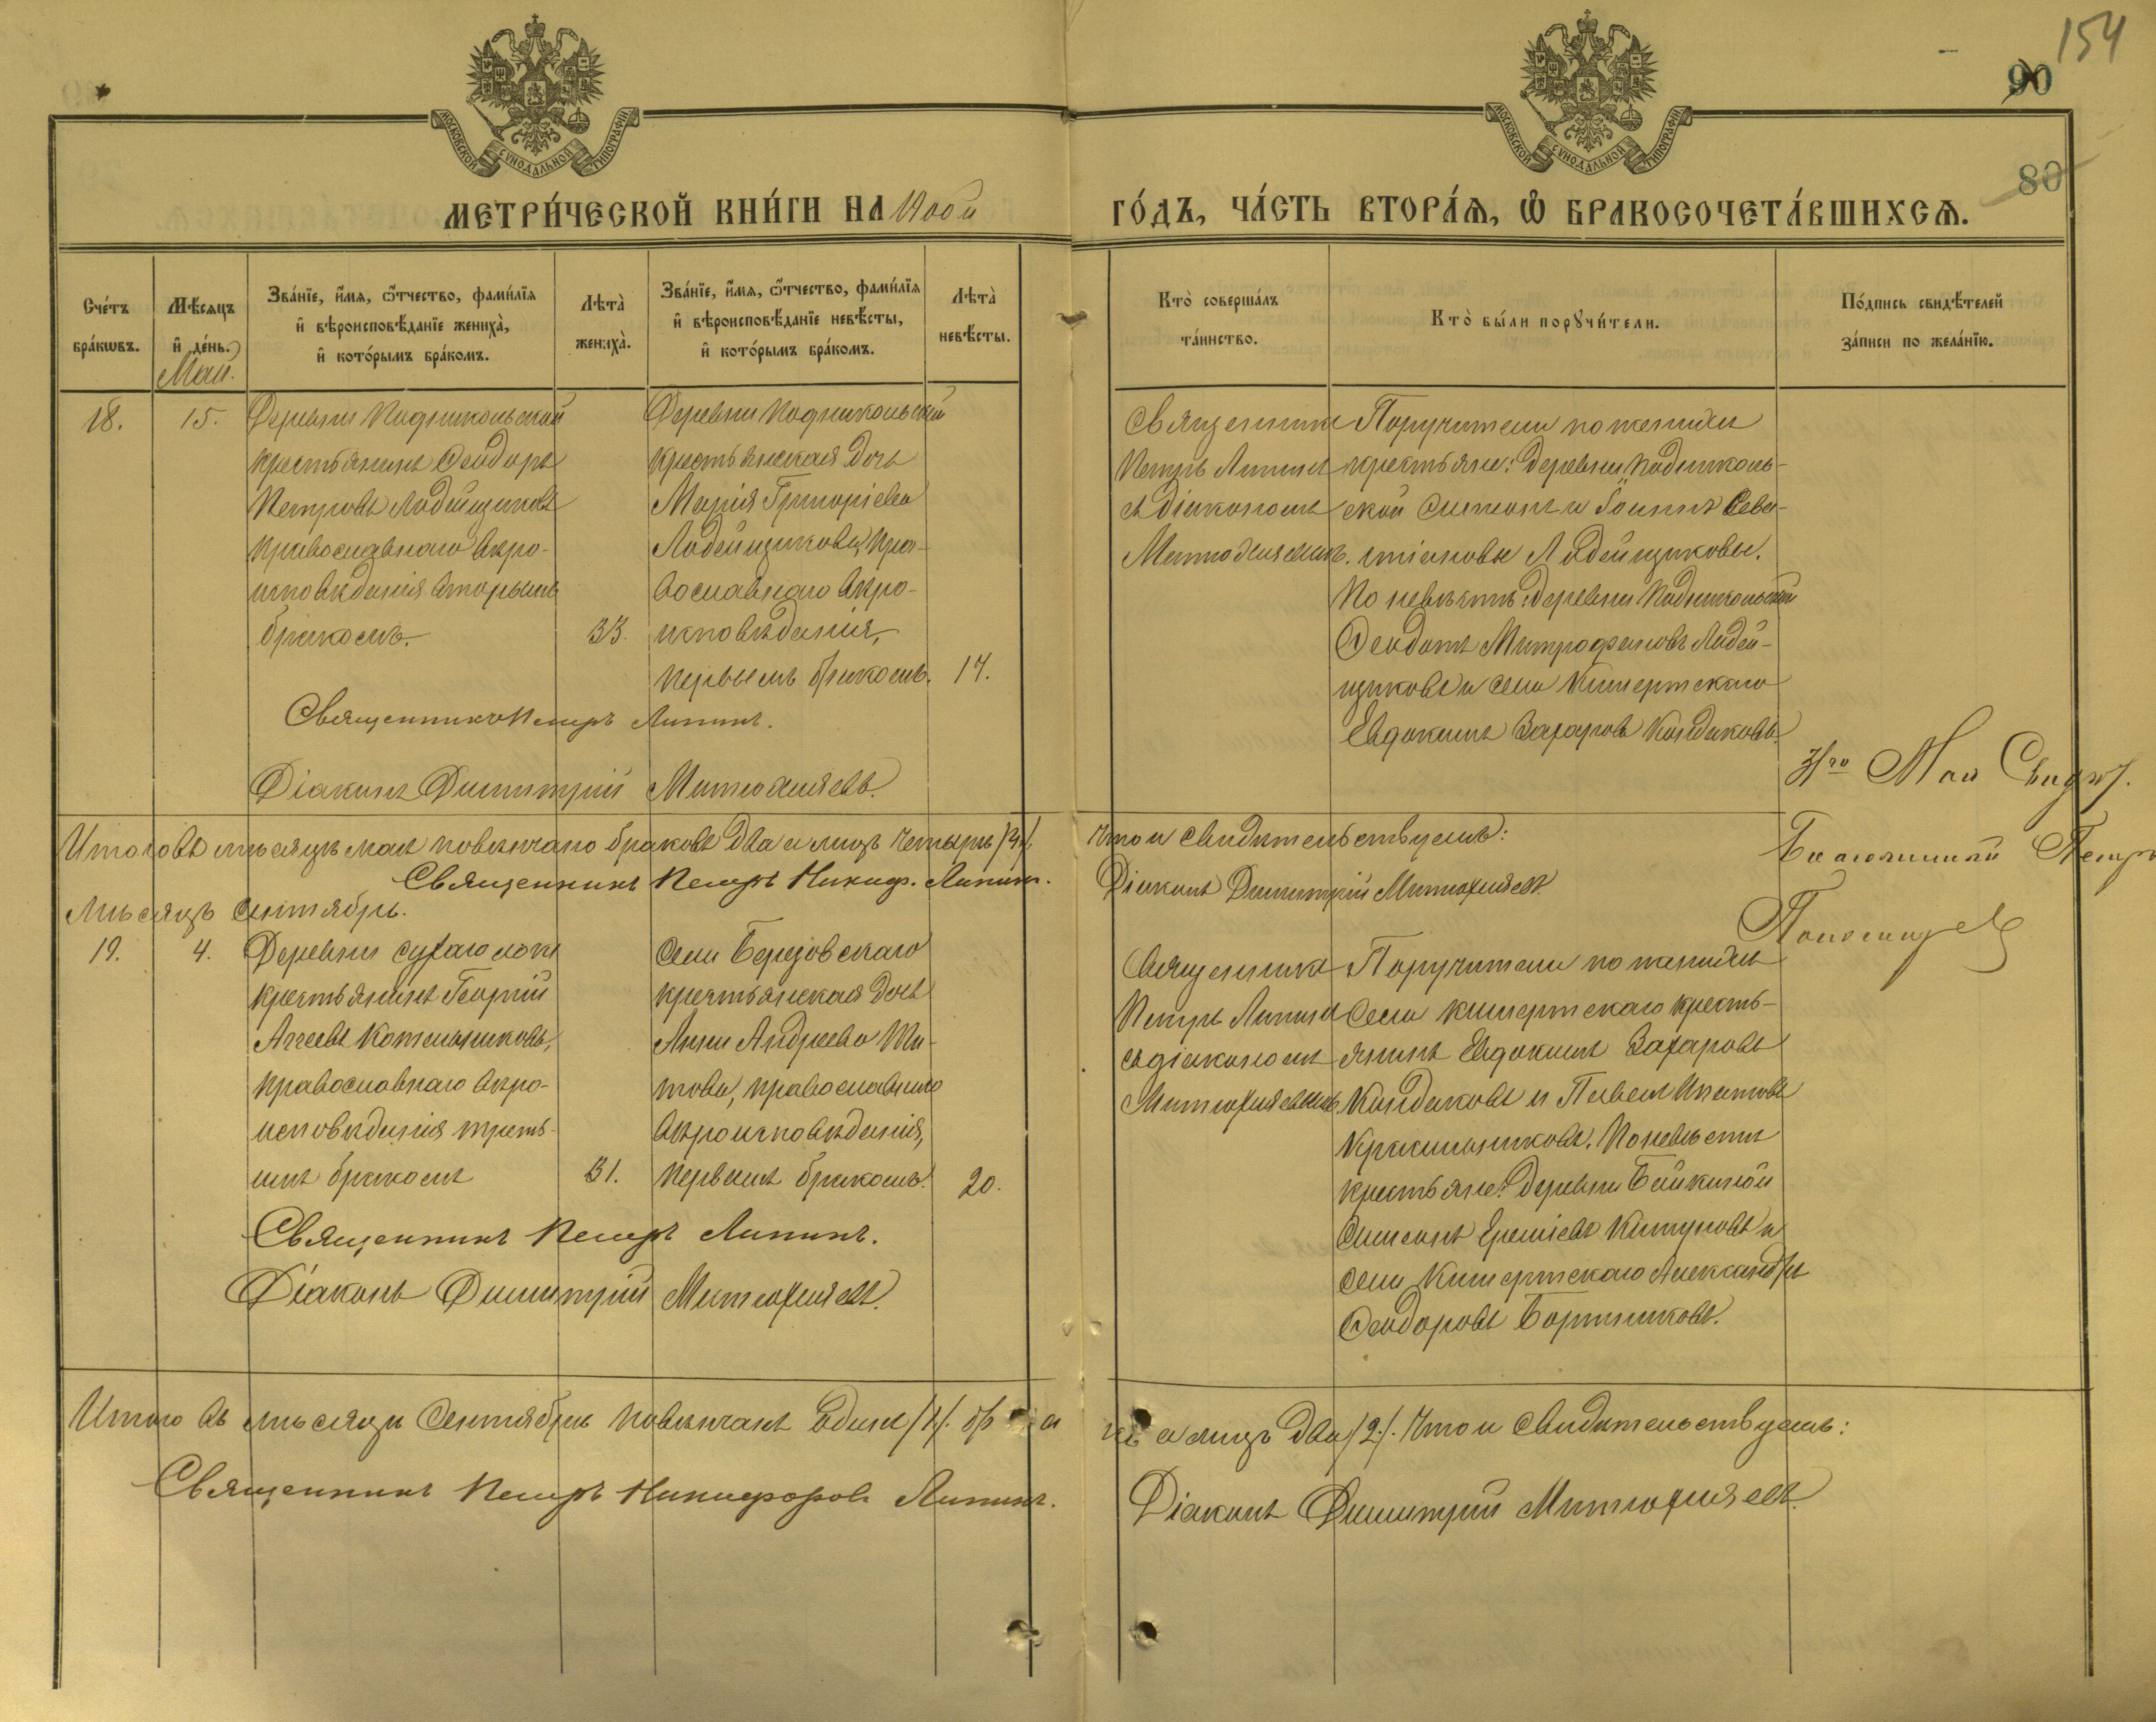 154
90
80
МОСКОВСКОЙ СѴНОДАЛЬНОЙ ТИПОГРАФІИ
МОСКОВСКОЙ СѴНОДАЛЬНОЙ ТИПОГРАФІИ
МЕТРИ́ЧЕСКОЙ КНИ́ГИ НА
ГО́ДЪ, ЧА́СТЬ ВТОРА́Ѧ, Ѽ БРАКОСОЧЕТА́ВШИХСѦ.
Сче́тъ бра́кѡвъ.
Мѣ́сѧцъ и҆ де́нь.
Зва́нїе, и҆́мѧ, ѻ҆́тчество, фами́лїѧ
и҆ вѣроисповѣ́данїе жениха̀,
и҆ кото́рымъ бра́комъ.
Лѣта̀ жениха̀.
Зва́нїе, и҆́мѧ, ѻ҆́тчество, фами́лїѧ
и҆ вѣроисповѣ́данїе невѣ́сты,
и҆ кото́рымъ бра́комъ.
Лѣта̀ невѣ́сты.
Кто̀ соверша́лъ та́инство.
Кто̀ бы́ли порꙋчи́тели.
По́дпись свидѣ́телей за́писи по жела́нїю.
Май.
18.
15.
Деревни Подникольской
крестьянинъ Ѳеодоръ
Петровъ Ладейщиковъ
православнаго вѣро-
исповѣданія вторымъ
бракомъ.
33.
Деревни Подникольской
крестьянская дочь
Марія Григоріева
Ладейщикова, пра-
вославнаго вѣро-
исповѣданія,
первымъ бракомъ.
17.
Священникъ
Петръ Липинъ
съ діакономъ
Поручители по женихѣ
крестьяне: деревни Подниколь-
ской Симонъ и Іоаннъ Сева-
стіановы Ладейщиковы.
По невѣстѣ: деревни Подникольской
Ѳеодотъ Митрофановъ Ладей-
щиковъ и села Кишертскаго
Евдокимъ Захаровъ Кондаковъ.
Священникъ Петръ Липинъ.
Діаконъ Димитрій
Мая
Благочинный Петръ
Итого въ мѣсяцѣ маѣ повѣнчано браковъ два а лицъ четыре /4/.
что и свидѣтельствуемъ:
Священникъ Петръ Никиф. Липинъ.
Діаконъ Димитрій
Мѣсяцъ Сентябрь.
19.
4.
Деревни Сухаго лога
крестьянинъ Георгій
Аггеевъ Котельниковъ,
православнаго вѣро-
исповѣданія треть-
имъ бракомъ
31.
Села Березовскаго
крестьянская дочь
Анна Андреева Ши-
това, православнаго
вѣроисповѣданія,
первымъ бракомъ.
20.
Священникъ
Петръ Липинъ
съ діакономъ
Поручители по женихѣ
Села Кишертскаго кресть-
янинъ Евдокимъ Захаровъ
Кондаковъ и Павелъ Ипатовъ
Красильниковъ. По невѣстѣ
крестьяне: деревни Байкиной
Симеонъ
села Кишертскаго Александръ
Ѳеодоровъ Бортниковъ.
Священникъ Петръ Липинъ.
Діаконъ Димитрій
Итого въ мѣсяцѣ Сентябрѣ повѣнчанъ одинъ /1/. бракъ а лицъ два /2/. что и свидѣтельствуемъ:
Священникъ Петръ Никифоровъ Липинъ.
Діаконъ Димитрій